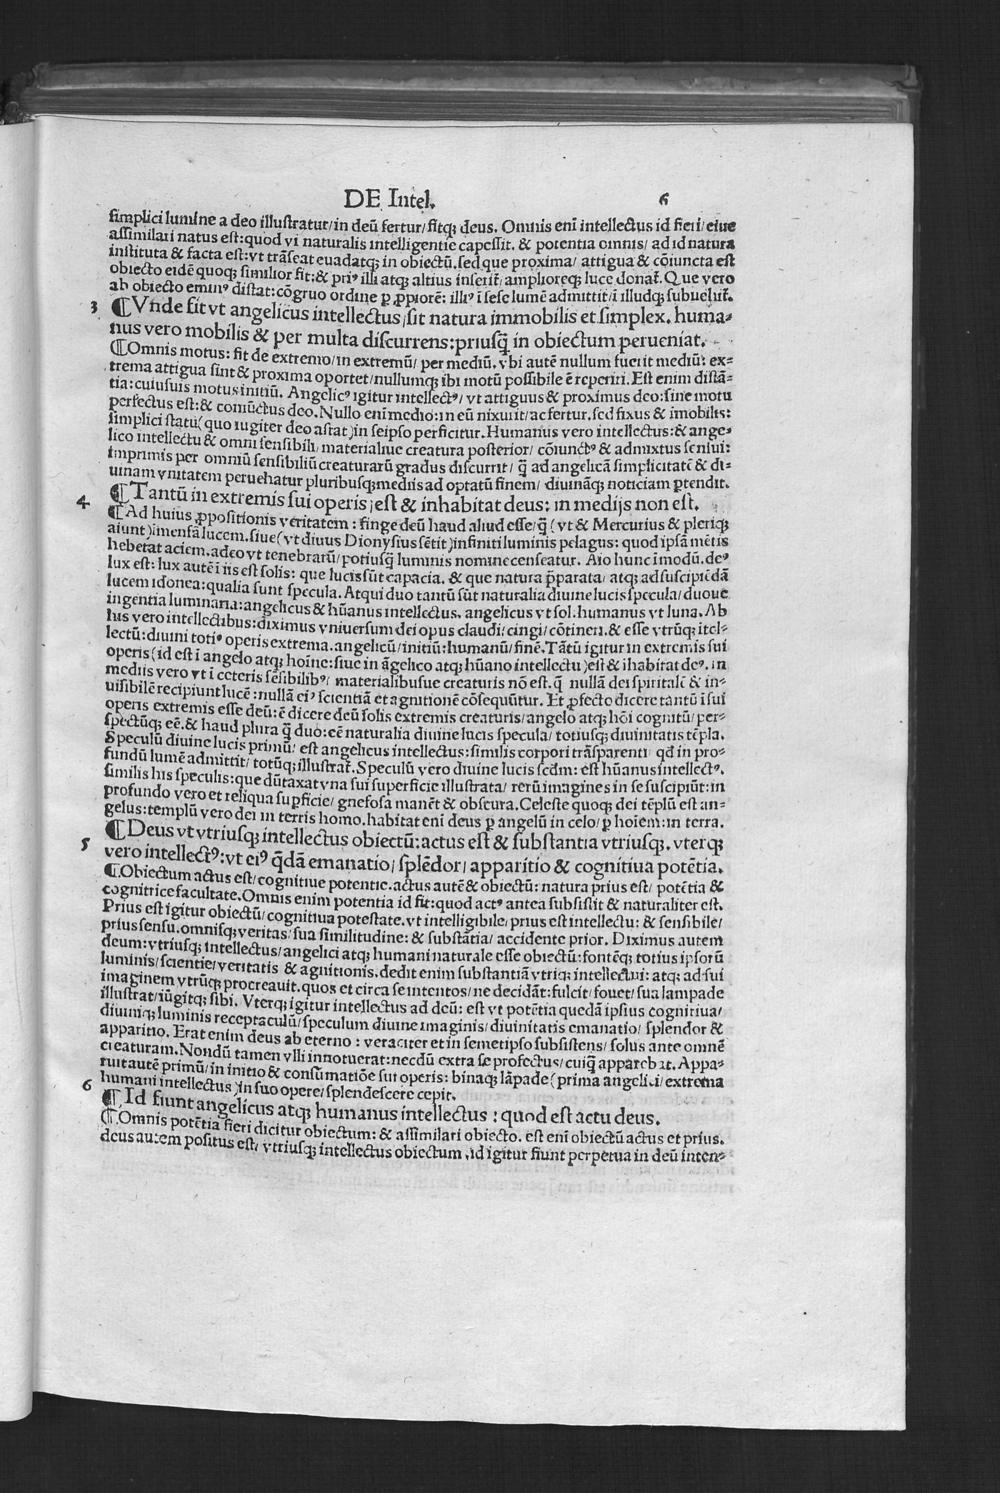 DE Intel. 6
simplici lumine a deo illustratur/in deū fertur/fitqꝫ deus. Omnis enī intellectus id fieri/eiue
assimilari natus est:quod vi naturalis intelligentie capessit. & potentia omnis/ad id natura
instituta & facta est:vt trāseat euadatqꝫ in obiectū.sed que proxima/attigua & cōiuncta est
obiecto eidē quoqꝫ similior fit:& priꝰ illi atqꝫ altius inserit̄/ampliorēqꝫ luce donat̄. Que vero
ab obiecto eminꝰ distat:cōgruo ordine ꝑ ꝓpiorē: illiꝰ ī sese lumē admittit/ī illudqꝫ subuehit̄.
3 ¶Vnde fit vt angelicus intellectus/sit natura immobilis et simplex. huma⸗
nus vero mobilis & per multa discurrens:priusꝙ̄ in obiectum perueniat.
¶Omnis motus: fit de extremo/in extremū/per mediū. vbi autē nullum fuerit mediū: ex⸗
trema attigua sint & proxima oportet/nullumqꝫ ibi motū possibile ē reperiri. Est enim distā⸗
tia:cuiusuis motus initiū. Angelicꝰ igitur intellectꝰ/vt attiguus & proximus deo:sine motu
perfectus est:& coniūctus deo. Nullo enī medio:in eū nixurit/ac fertur.sed fixus & imobilis:
simplici statu(quo iugiter deo astat)in seipso perficitur.Humanus vero intellectus:& ange⸗
lico intellectu & omni sensibili/materialiue creatura posterior/cōiunctꝰ & admixtus senſui:
imprimis per omniū sensibiliū creaturarū gradus discurrit/ꝙ̄ ad angelicā simplicitatē & di⸗
uinam vnitatem peruehatur pluribusqꝫmediis ad optatū finem/diuināqꝫ noticiam ꝑtendit.
4 ¶Tantū in extremis sui operis/est & inhabitat deus: in medijs non est.
¶Ad huius ꝓpositionis veritatem : finge deū haud aliud esse/ꝙ̄ (vt & Mercurius & pleriqꝫ
aiunt)imensā lucem.siue(vt diuus Dionysius sētit)infiniti luminis pelagus: quod ipsā mētis
hebetat aciem.adeo vt tenebrarū/potiusꝙ̄ luminis nomine censeatur. Aio hunc ī modū.deꝰ
lux est: lux autē ī iis est solis: que lucis sūt capacia. & que natura p̄parata/atqꝫ ad suscipiēdā
lucem idonea:qualia sunt specula. Atqui duo tantū sūt naturalia diuine lucis specula/duoue
ingentia luminaria:angelicus & hūanus intellectus. angelicus vt sol.humanus vt luna. Ab
his vero intellectibus:diximus vniuersum dei opus claudi/cingi/cōtineri.& esse vtrūqꝫ ītel⸗
lectū:diuini totiꝰ operis extrema.angelicū/initiū:humanū/finē.Tātū igitur in extremis sui
operis(id est ī angelo atqꝫ hoīne:siue in āgelico atqꝫ hūano intellectu)est & īhabitat deꝰ. in
mediis vero vt ī ceteris sēsibilibꝰ/materialibusue creaturis nō est.ꝙ̄ nullā dei spiritalē & in⸗
uisibilē recipiunt lucē : nullā eiꝰ scientiā et agnitionē cōsequūtur. Et ꝓfecto dicere tantū ī sui
operis extremis esse deū:ē dicere deū solis extremis creaturis/angelo atqꝫ hōi cognitū/per⸗
spectūqꝫ eē.& haud plura ꝙ̄ duo:eē naturalia diuine lucis specula/totiusqꝫ diuinitatis tēpla.
Speculū diuine lucis primū/est angelicus intellectus:similis corpori trāsparenti/qđ in pro⸗
fundū lumē admittit/totūqꝫ illustrat̄.Speculū vero diuine lucis scđm: est hūanus intellectꝰ.
similis his speculis:que dūtaxat vna sui superficie illustrata/rerū imagines in se suscipiūt:in
profundo vero et reliqua suꝑficie/gnefosa manēt & obscura.Celeste quoqꝫ dei tēplū est an⸗
gelus:templū vero dei in terris homo.habitat enī deus ꝑ angelū in celo/ꝑ hoiem:in terra.
5 ¶Deus vt vtriusqꝫ intellectus obiectū:actus est & substantia vtriusqꝫ. vterqꝫ
vero intellectꝰ:vt eiꝰ ꝗ̄dā emanatio/splēdor/apparitio & cognitiua potētia.
¶Obiectum actus est/cognitiue potentie.actus autē & obiectū: natura prius est/potētia &
cognitrice facultate.Omnis enim potentia id fit:quod actꝰ antea subsistit & naturaliter est.
Prius est igitur obiectū/cognitiua potestate.vt intelligibile/prius est intellectu: & sensibile/
prius sensu.omnisqꝫ veritas/sua similitudine: & substātia/accidente prior. Diximus autem
deum:vtriusqꝫ intellectus/angelici atqꝫ humani naturale esse obiectū:fontēqꝫ totius ipsorū
luminis/scientie/veritatis & agnitionis.dedit enim substantiā vtriqꝫ intellectui: atqꝫ ad sui
imaginem vtrūqꝫ procreauit.quos et circa se intentos/ne decidāt:fulcit/fouet/sua lampade
illustrat/iūgitqꝫ sibi. Vterqꝫ igitur intellectus ad deū: est vt potētia quedā ipsius cognitiua/
diuiniqꝫ luminis receptaculū/speculum diuine imaginis/diuinitatis emanatio/splendor &
apparitio. Erat enim deus ab eterno : veraciter et in semetipso subsistens/solus ante omnē
creaturam.Nondū tamen vlli innotuerat:necdū extra se profectus/cuiꝙ̄ apparebat. Appa⸗
ruit autē primū/in initio & consūmatiōe sui operis: binaqꝫ lāpade(prima angeli.i/extrema
humani intellectus)in suo opere/splendescere cepit.
6 ¶Id fiunt angelicus atqꝫ humanus intellectus : quod est actu deus.
¶Omnis potētia fieri dicitur obiectum: & assimilari obiecto. est enī obiectū actus et prius.
deus autem positus est/vtriusqꝫ intellectus obiectum.id igitur fiunt perpetua in deū inten⸗